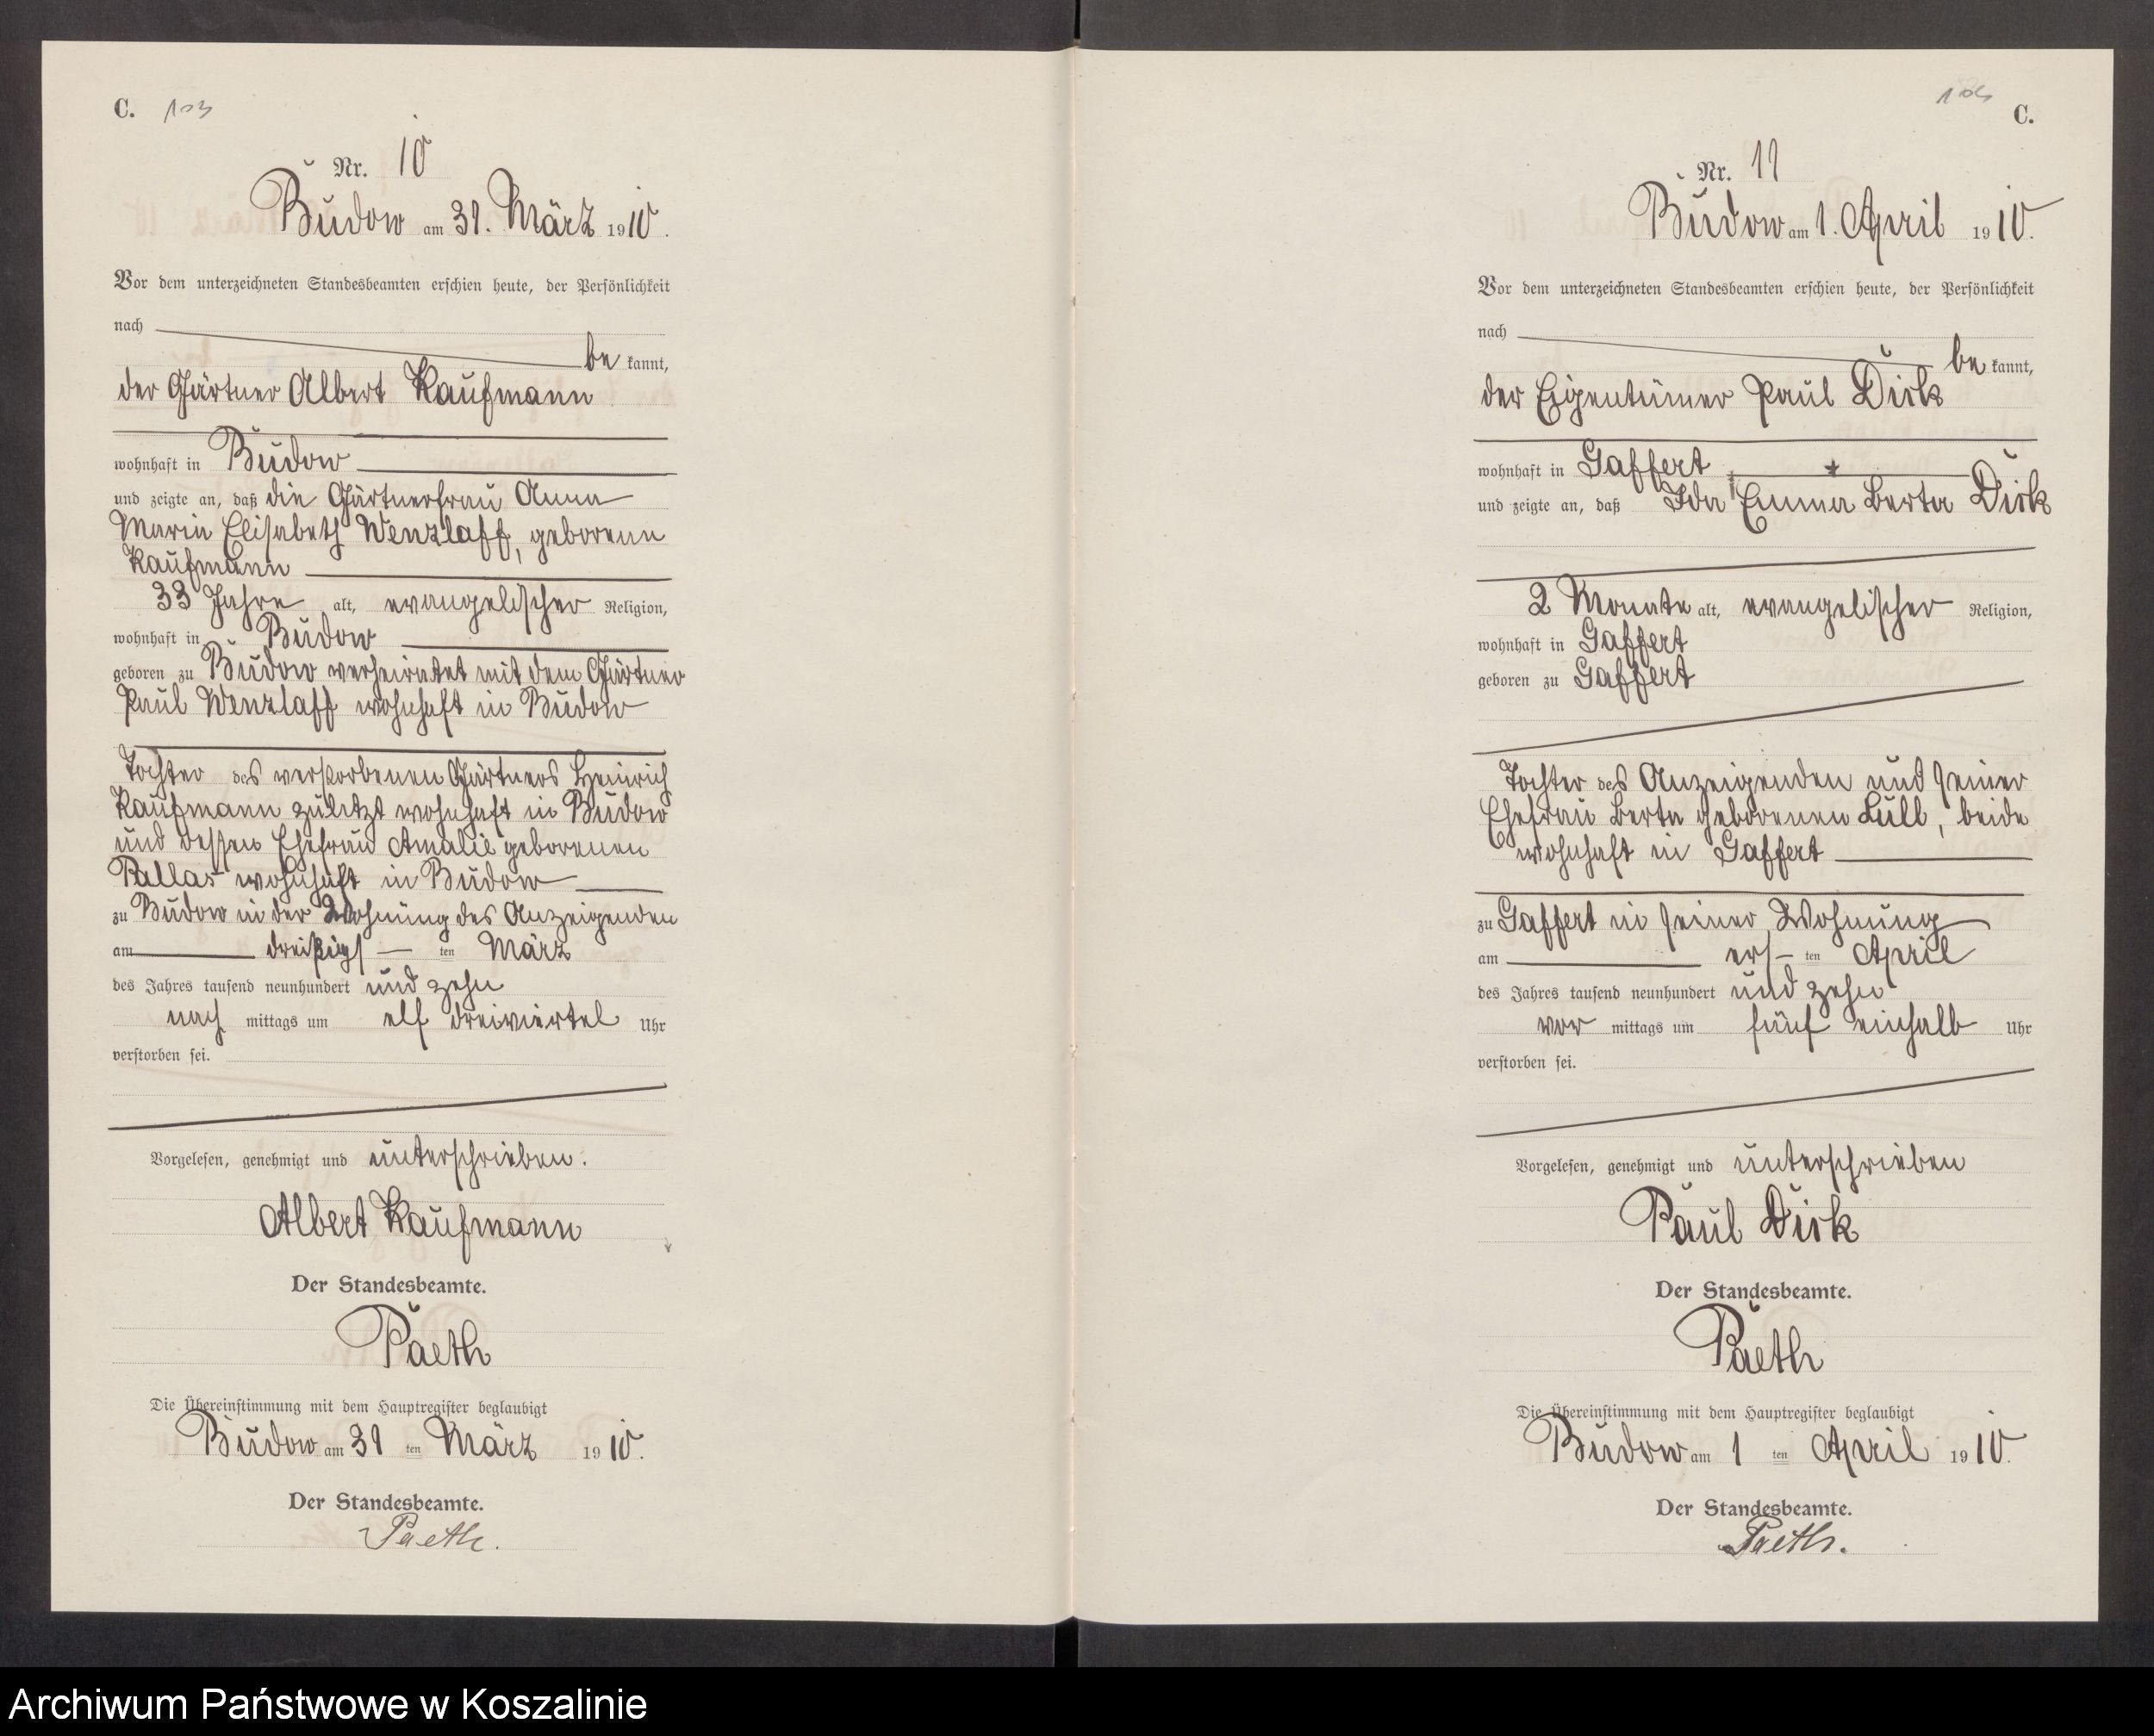 C. 103
Nr. 10
Budow am 31. März 1910.
Vor dem unterzeichneten Standesbeamten erschien heute, der Persönlichkeit
nach
be kannt,
der Gärtner Albert Kaufmann
wohnhaft in Budow
und zeigte an, daß die Gärtnerfrau Anna
Maria Elisabeth Wenzlaff, geborene
Kaufmann
33 Jahre alt, evangelischer Religion,
wohnhaft in Budow
geboren zu Budow verheiratet mit dem Gärtner
Paul Wenzlaff wohnhaft in Budow
Tochter des verstorbenen Gärtners Heinrich
Kaufmann zuletzt wohnhaft in Budow
und dessen Ehefrau Amalie geborenen
Pallas wohnhaft in Budow
zu Budow in der Wohnung des Anzeigenden
am dreißigs ten März
des Jahres tausend neunhundert und zehn
nach mittags um elf dreiviertel Uhr
verstorben sei.
Vorgelesen, genehmigt und unterschrieben.
Albert Kaufmann
Der Standesbeamte.
Paeth
Die Übereinstimmung mit dem Hauptregister beglaubigt
Budow am 31 ten März 1910.
Der Standesbeamte.
Paeth.
104 C.
Nr. 11
Budow am 1. April 1910.
Vor dem unterzeichneten Standesbeamten erschien heute, der Persönlichkeit
nach
be kannt,
der Eigentümer Paul Dirk
wohnhaft in Gaffert
und zeigte an, daß Ida Emma Berta Dirk
2 Monate alt, evangelischer Religion,
wohnhaft in Gaffert
geboren zu Gaffert
Tochter des Anzeigenden und seiner
Ehefrau Berta geborenen Lull, beide
wohnhaft in Gaffert
zu Gaffert in seiner Wohnung
am ers ten April
des Jahres tausend neunhundert und zehn
vor mittags um fünf einhalb Uhr
verstorben sei.
Vorgelesen, genehmigt und unterschrieben
Paul Dirk
Der Standesbeamte.
Paeth
Die Übereinstimmung mit dem Hauptregister beglaubigt
Budow am 1 ten April 1910.
Der Standesbeamte.
Paeth.
Archiwum Państwowe w Koszalinie